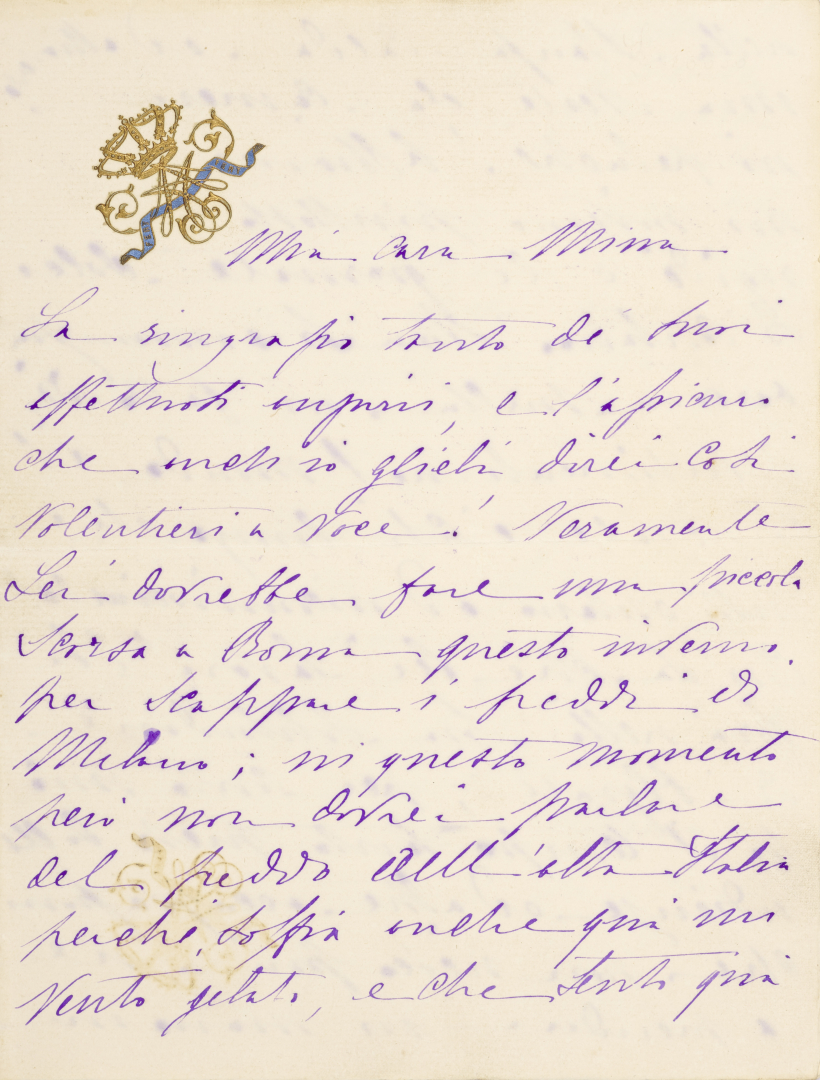 Mia cara Mina
La ringrazio tanto de suoi
affettuosi auguri, e l'assicuro
che anch'io glieli direi così
volentieri a voce! Veramente
Lei dovrebbe fare una piccola
scorsa a Roma questo inverno.
per scappare i freddi di
Milano; in questo momento
però non dovrei parlare
del freddo dell'alta Italia
perché, soffia anche quà un
vento gelato, e che sento quà